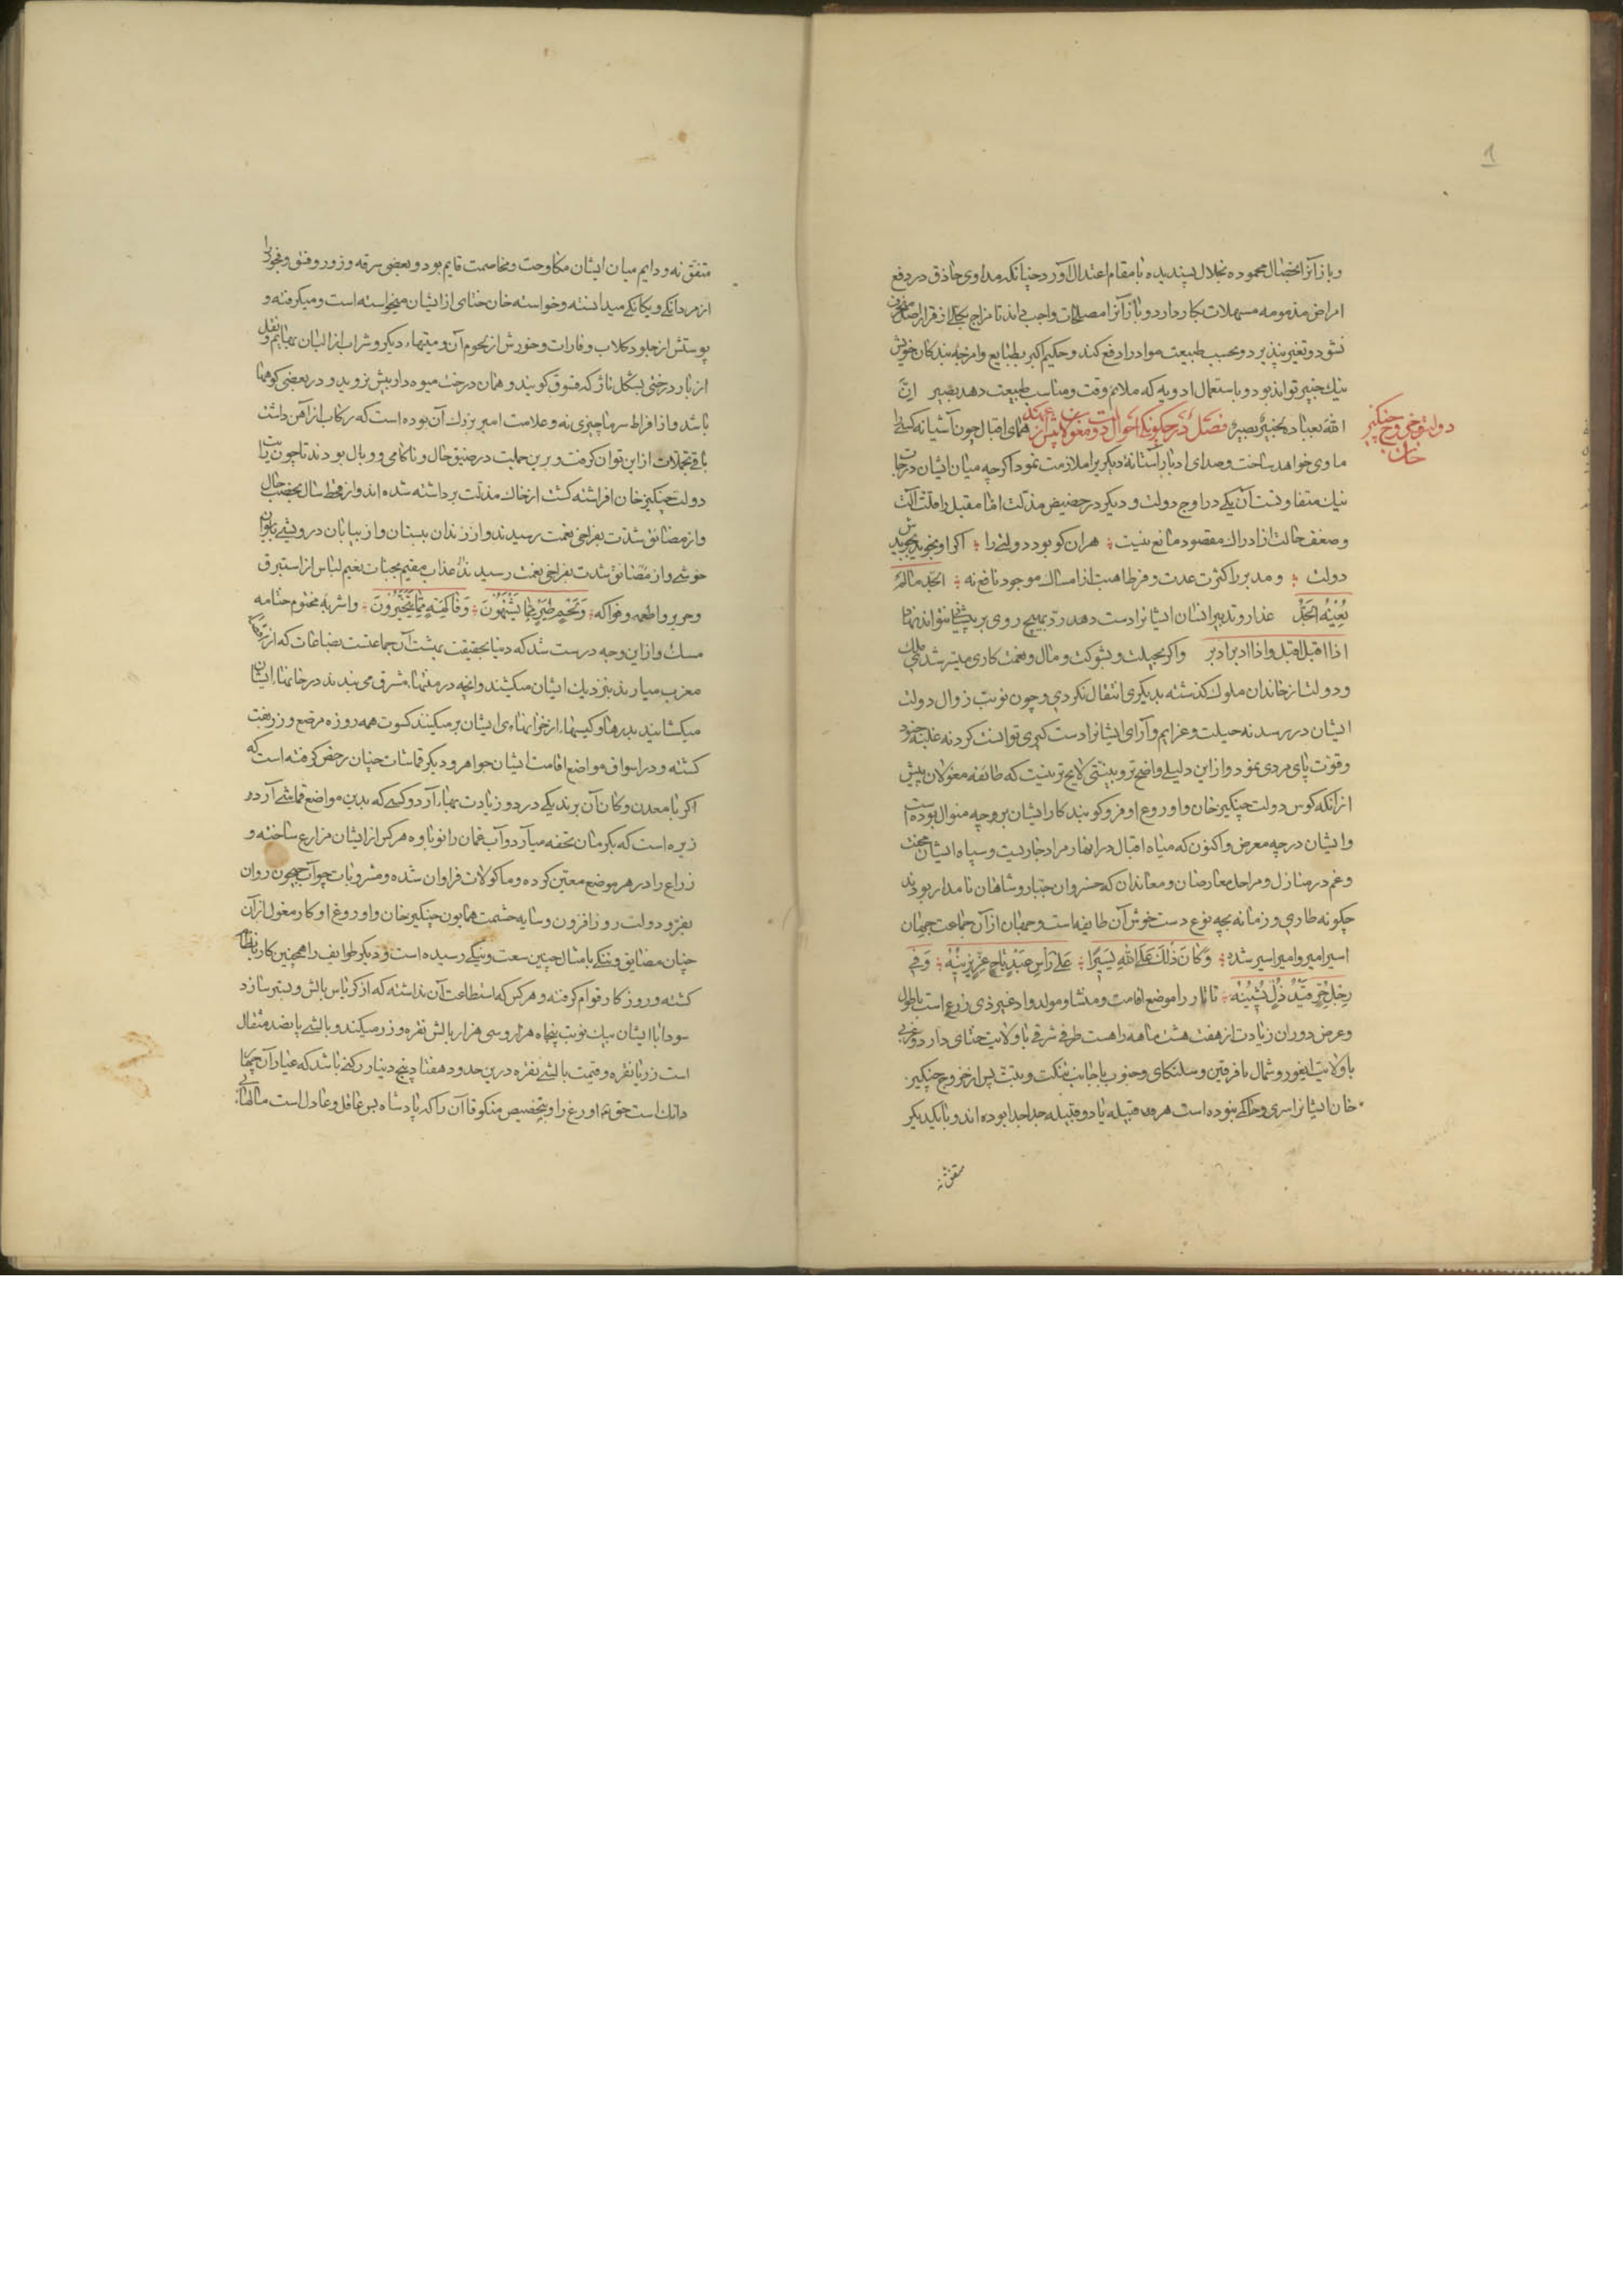 1
و باز آنرا بخصال محموده بخلال پسندیده با مقام اعتدال آورد چنانکه مداوی حاذق در دفع
امراض مذمومه مسهلات بکار دارد و باز آنرا مصلحات واجب داند تا مزاج بکلی از قرار اصل منحرف
نشود و تغیر نپذیرد و بحسب طبیعت مواد را دفع کند و حکیم اکبر بطبایع و امزجه بندکان خویش
نیک خبیر تواند بود و باستعمال ادویه که ملایم وقت و مناسب طبیعت دهد بصیر انّ
الله بعباده لخبیر بصیر فصل در چکونکی احوال مغولان پیش از
دولت و خروج چنکیز
خان
همای اقبال چون آشیانه کسی را
ماوی خواهد ساخت و صدای ادبار آستانهٔ دیکری را ملازمت نمود اکرچه میان ایشان درجات
نیک متفاوتست آن یکی در اوج دولت و دیکر در حضیض مذلت اما مقبل را قلت آلت
و ضعف حالت از ادراک مقصود مانع نیست هران کو بود دولتی را اکر او نجوید بجویدش
دولت و مدبر را کثرت عدت و فرط اهبت از امساک موجود نافع نه الجدّ مالم
یُعِنْه الجَدّ غدار و تدبیر انسان ایشانرا دست دهد ردّ بهیچ روی بر پیشانی نتواند نهاد
اذا اقبل اقبل و اذا ادبر ادبر و اکر بحیلت و شوکت و مال و نعمت کاری میسر شدی ملک
و دولت از خاندان ملوک کذشته بدیکری انتقال نکردی و چون نوبت زوال دولت
ایشان در رسد نه حیلت و عزایم و آرای ایشانرا دست کیری توانست کرد نه غلبه جنود
و قوت پای مردی نمود و ازین دلیلی واضح‌تر و بینتی لایح‌تر نیست که طائفه مغولان پیش
ازانکه کوس دولت چنکیز خان و اوروغ او فرو کوبند کار ایشان بر چه منوال بوده است
و ایشان در چه معرض و اکنون که میاه اقبال در انهار مراد جاریست و سپاه ایشان محنت
و غم در منازل و مراحل معارضان و معاندان که خسروان جبار و شاهان نامدار بودند
چکونه طاری و زمانه بچه نوع دست خوش آن طایفه است و جهان از آن جماعت جهان
اسیر امیر و امیر اسیر شده وَکَانَ ذٰلِکَ عَلَی اللهِ یَسِیرًا عَلَی رَأسِ عَبْدٍ تَاجُ عِزٍّ یَزِینُهُ وَفِی
رِجْلِ حُرٍّ قَیْدُ ذُلٍّ یَشِینُهُ تاتار را موضع اقامت و منشا و مولد وادی غیر ذی زرع است با طول
و عرض دوران زیادت از هفت هشت ماهه راهست طرف شرقی با ولایت ختای دارد و غربی
با ولایت ایغور و شمال با قرقیز و سلنکای و جنوب با جانب تنکت و تبت پس از خروج چنکیز
خان ایشانرا سری و حاکمی نبوده است هر یک قبیله یا دو قبیله جدا جدا بوده‌اند و با یکدیکر
متفق نه
متفق نه و دایم میان ایشان مکاوحت و مخاصمت قایم بود و بعضی سرقه و زور و فسق و فجور را
از مردانکی و یکانکی میدانسته و خواسته خان ختای از ایشان میخواسته است و میکرفته و
پوستش از جلود کلاب و فارات و خورش از لحوم آن و میتهاء دیکر و شراب از البان بهایم و نقل
از بار درختی بشکل ناژ که قسوق کویند و همان درخت میوه‌دار بیش نروید و در بعضی کوهها
باشد و از افراط سرما چیزی نه و علامت امیر بزرک آن بوده است که رکاب از آهن داشت
باقی تجملات ازین توان کرفت و برین جملت در ضیق حال و ناکامی و وبال بودند تا چون رایت
دولت چنکیز خان افراشته کشت از خاک مذلت برداشته شده‌اند و از قحط سال بخصب حال
و از مضایق شدت بفراخی نعمت رسیدند و از زندان ببستان و از بیابان درویشی بایوان
خوشی و از مضایق شدت بفراخی نعمت رسیدند از عذاب مقیم بجنات نعیم لباس از استبرق
و حریر و اطعمه و فواکه وَلَحْمِ طَیْرٍ مِمَّا یَشْتَهُونَ وَفَاکِهَةٍ مِمَّا یَتَخَیَّرُونَ و اشربه مختوم ختامه
مسک و از این وجه درست شد که دنیا بحقیقت بهشت آن جماعتست بضاعات که از
مغرب میارند بنزدیک ایشان میکشند و آنچه در منتهاء مشرق می‌بندند در خانهاء ایشان
میکشایند بدرها و کیسها از خزانهای ایشان پر میکنند کسوت همه روزه مرصع و زربفت
کشته و در اسواق مواضع اقامت ایشان جواهر و دیکر قماشات چنان رخص کرفته است که
اکر با معدن و کان آن برند یکی در دو زیادت بهاء آرد و کسی که بدین مواضع قماشی آرد
زیره است که بکرمان تحفه میآرد و آب عمان را نوباوه هر کس از ایشان مزارع ساخته و
زراع را در هر موضع معین کرده و ماکولات فراوان شده و مشروبات چو آب جیحون روان
بفرّ دولت روز افزون و سایه حشمت همایون چنکیز خان و اوروغ او کار مغول از آن
چنان مضایق و تنکی بامثال چنین سعت و نیکی رسیده است و دیکر طوایف را همچنین کار بانظام
کشته و روزکار قوام کرفته و هر کس که استطاعت آن نداشته که از کرباس بالش و بستر سازد
سودا با ایشان بیک نوبت پنجاه هزار و سی هزار بالش نقره و زر میکند و بالشی پانصد مثقال
است زر یا نقره و قیمت بالشی نقره درین حدود هفتاد پنج دینار رکنی باشد که عیار آن چهار
دانک است حق تعالی اوروغ او را و بتخصیص منکوقاآن را که پادشاه بس عاقل و عادل است سالها